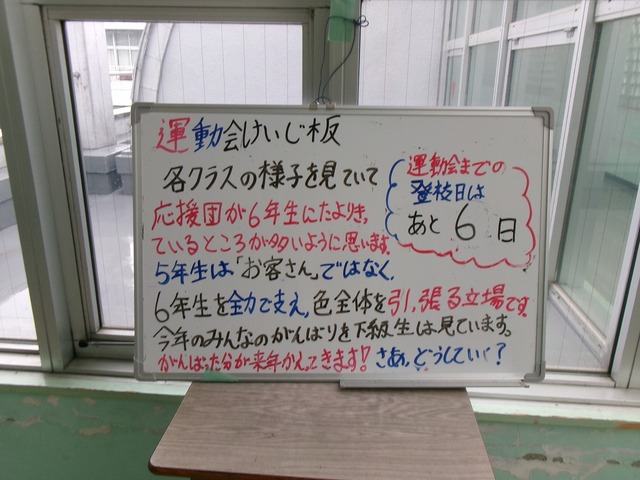 運動会けいじ板
各クラスの様子を見ていて
応援団が6年生にたよりきっ
ているところが多いように思います。
5年生は「お客さん」ではなく、
6年生を全力で支え、色全体を引っ張る立場です。
今年のみんなのがんばりを下級生は見ています。
がんばった分が来年かえってきます!さあ、どうしていく?
運動会までの
登校日は
あと6日